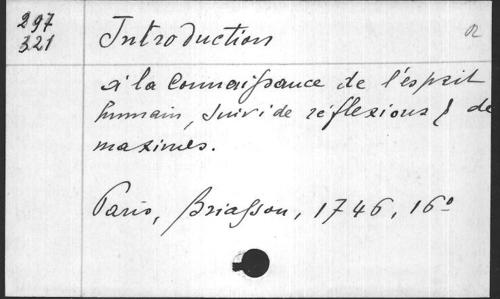 297
321
Introduction
à la Connaissance de l'esprit
humain, suivi de réflexions & de
maximes.
Paris, Briasson, 1746, 16º